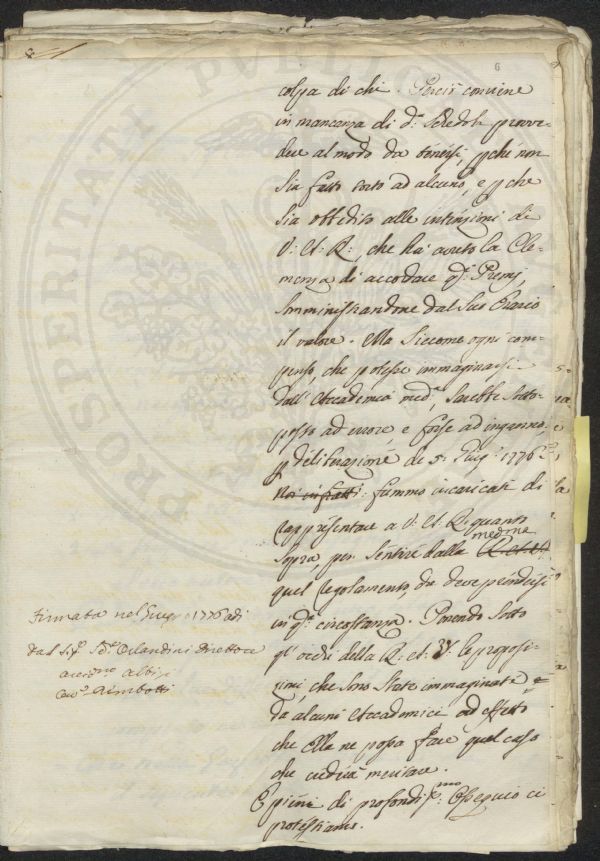 6
colpa di chi. Perciò conviene
in mancanza di d.e Schedole provve-
dere al modo da tenersi, p che non
sia fatto torto ad alcuno, e p che
sia obbedito alle intenzioni di
V: A: R:, che ha avuto la Cle-
menza di accordare q.i Premj,
somministrandone dal Suo Erario
il valore. Ma siccome ogni com-
penso, che potesse immaginarsi
dall' Accademia med.a, sarebbe sotto-
posto ad errore, e forse ad inganno,
p deliberazione de 5. Giug.o 1776
Noi infratti: fummo incaricati di
rappresentare a V: A: R: quanto
sopra, per sentire dalla R: A: V:
medma
quel regolamento da deve prendersi
in q.a circostanza. Ponendo sotto
gl' occhi della R: A: V: le proposi-
zioni, che sono state immaginate
da alcuni Accademici, ad effetto
che Ella ne possa fare quel caso
che crederà meritare.
E pieni di profondis.mo Ossequio ci
protestiamo.
firmata nel Giug.o 1776 adi
dal Sig.e Orlandini Direttore
PROSPERITATI PUBLICAE